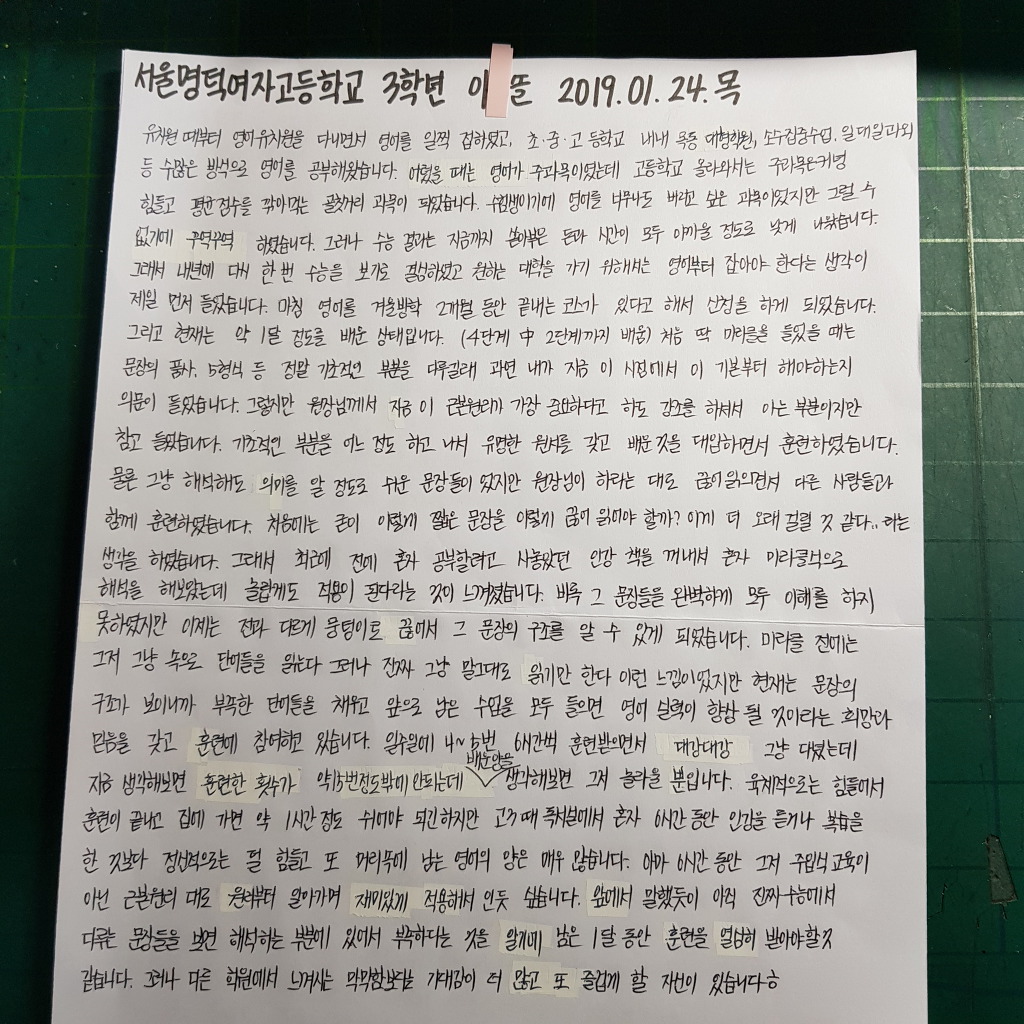 서울명덕여자고등학교 3학년 이 뜰 2019.01.24.목
유치원 때부터 영어유치원을 다니면서 영어를 일찍 접하였고, 초·중·고 등학교 내내 목동 대형학원, 소수집중수업, 일대일과외
등 수많은 방식으로 영어를 공부해왔습니다. 어렸을 때는 영어가 주과목이었는데 고등학교 올라와서는 주과목은커녕
힘들고 평균 점수를 깎아먹는 골칫거리 과목이 되었습니다. 수험생이기에 영어를 너무나도 버리고 싶은 과목이었지만 그럴 수
없기에 꾸역꾸역 하였습니다. 그러나 수능 결과는 지금까지 쏟아부은 돈과 시간이 모두 아까울 정도로 낮게 나왔습니다.
그래서 내년에 다시 한 번 수능을 보기로 결심하였고 원하는 대학을 가기 위해서는 영어부터 잡아야 한다는 생각이
제일 먼저 들었습니다. 마침 영어를 겨울방학 2개월 동안 끝내는 코스가 있다고 해서 신청을 하게 되었습니다.
그리고 현재는 약 1달 정도를 배운 상태입니다. (4단계 中 2단계까지 배움) 처음 딱 미라클을 들었을 때는
문장의 품사, 5형식 등 정말 기초적인 부분을 다루길래 과연 내가 지금 이 시점에서 이 기본부터 해야하는지
의문이 들었습니다. 그렇지만 원장님께서 지금 이 근본원리가 가장 중요하다고 하도 강조를 하셔서 아는 부분이지만
참고 들었습니다. 기초적인 부분을 어느 정도 하고 나서 유명한 원서를 갖고 배운 것을 대입하면서 훈련하였습니다.
물론 그냥 해석해도 의미를 알 정도로 쉬운 문장들이 있지만 원장님이 하라는 대로 끊어읽으면서 다른 사람들과
함께 훈련하였습니다. 처음에는 굳이 이렇게 짧은 문장을 이렇게 끊어 읽어야 할까? 이게 더 오래 걸릴 것 같다.. 라는
생각을 하였습니다. 그래서 최근에 전에 혼자 공부할려고 사놓았던 인강 책을 꺼내서 혼자 미라클식으로
해석을 해보았는데 놀랍게도 적용이 된다라는 것이 느껴졌습니다. 비록 그 문장들을 완벽하게 모두 이해를 하지
못하였지만 이제는 전과 다르게 뭉텅이로 끊어서 그 문장의 구조를 알 수 있게 되었습니다. 미라클 전에는
그저 그냥 속으로 단어들을 읽는다 그러나 진짜 그냥 말그대로 읽기만 한다 이런 느낌이었지만 현재는 문장의
구조가 보이니까 부족한 단어들을 채우고 앞으로 남은 수업을 모두 들으면 영어 실력이 향상 될 것이라는 희망과
믿음을 갖고 훈련에 참여하고 있습니다. 일주일에 4~5번 6시간씩 훈련받으면서 대강대강 그냥 다녔는데
지금 생각해보면 훈련한 횟수가 약15번정도밖에 안되는데 배운양을 생각해보면 그저 놀라울 뿐입니다. 육체적으로는 힘들어서
훈련이 끝나고 집에 가면 약 1시간 정도 쉬어야 되긴하지만 고3 때 독서실에서 혼자 6시간 동안 인강을 듣거나 복습을
한 것보다 정신적으로는 덜 힘들고 또 머리속에 남는 영어의 양은 매우 많습니다. 아마 6시간 동안 그저 주입식 교육이
아닌 근본원리 대로 원리부터 알아가며 재미있게 적용해서 인듯 싶습니다. 앞에서 말했듯이 아직 진짜 수능에서
다루는 문장들을 보면 해석하는 부분에 있어서 부족하다는 것을 알기에 남은 1달 동안 훈련을 열심히 받아야할것
같습니다. 그러나 다른 학원에서 느껴지는 막막함보다는 기대감이 더 많고 또 즐겁게 할 자신이 있습니다ㅎ